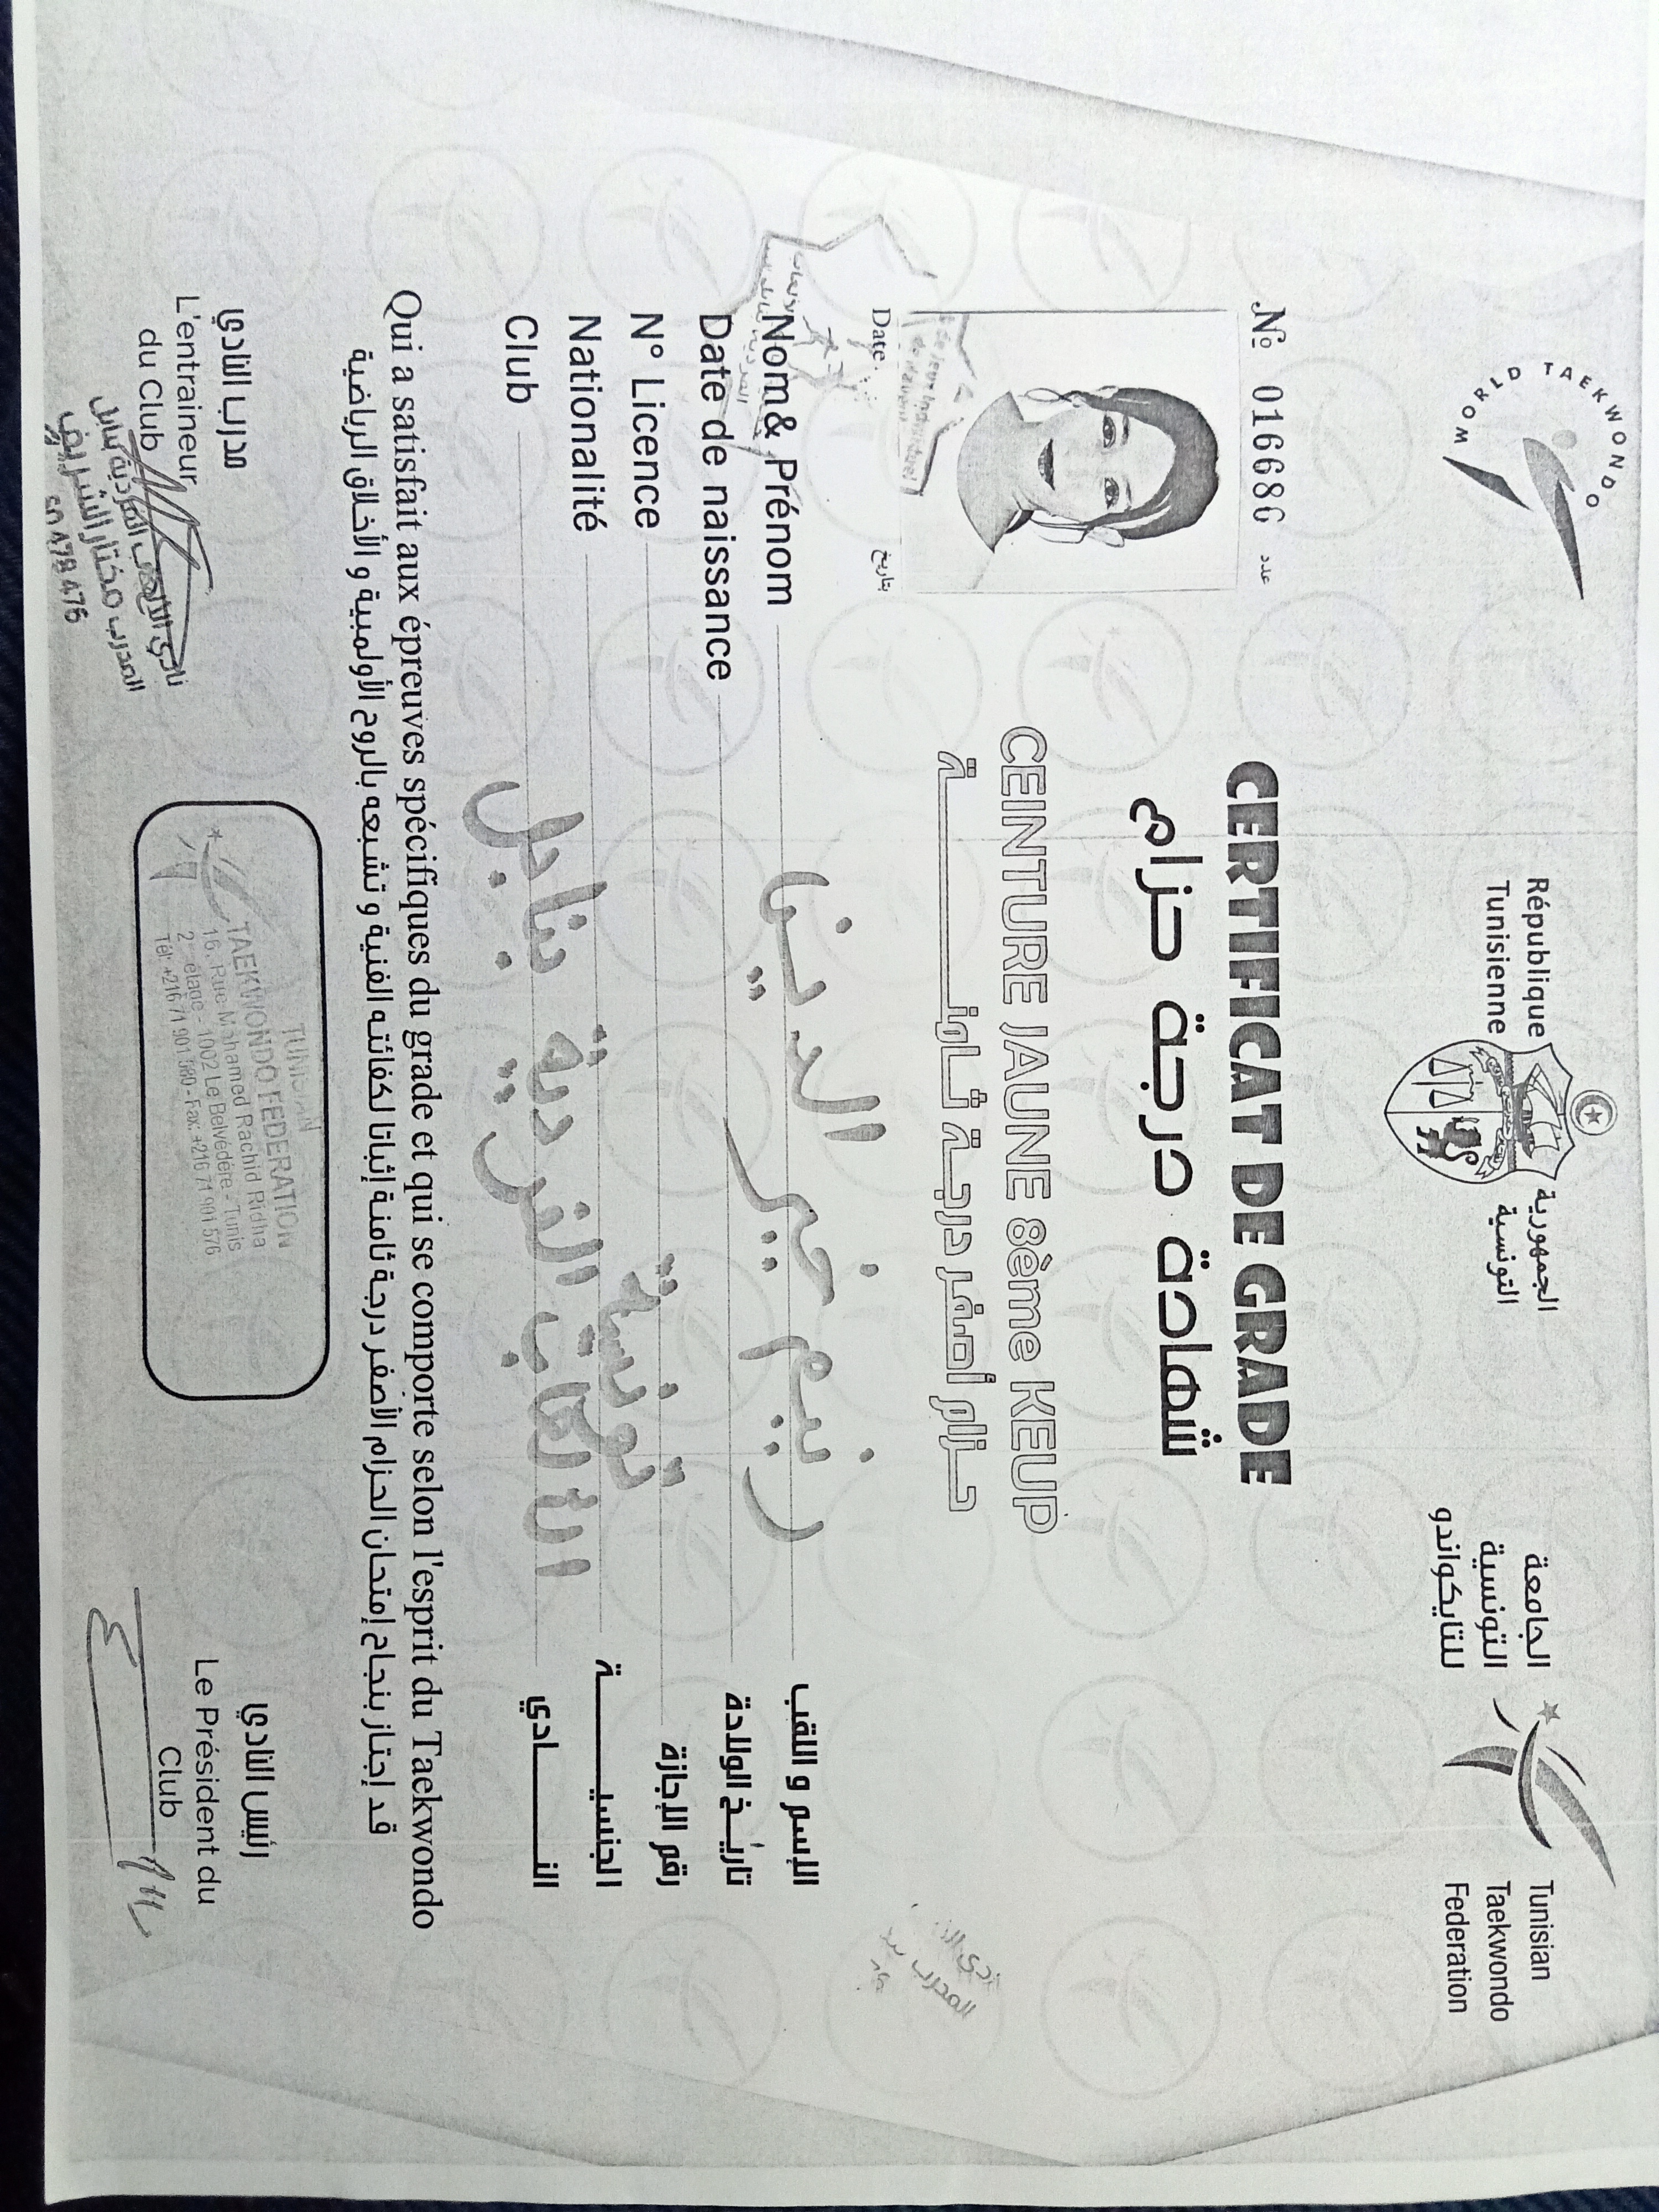 WORLD TAEKWONDO
République
Tunisienne
الجمهورية
التونسية
الجامعة
التونسية
للتايكواندو
Tunisian
Taekwondo
Federation
№ 016686 عدد
CERTIFICAT DE GRADE
شهادة درجة حزام
CEINTURE JAUNE 8ème KEUP
حزام أصفر درجة ثامنة
Date بتاريخ
Nom& Prénom ريم خير الدين الإسم و اللقب
Date de naissance تاريخ الولادة
N° Licence رقم الإجازة
Nationalité تونسية الجنسية
Club الألعاب الفردية بنابل النادي
Qui a satisfait aux épreuves spécifiques du grade et qui se comporte selon l'esprit du Taekwondo
قد إجتاز بنجاح إمتحان الحزام الأصفر درجة ثامنة إثباتا لكفائته الفنية و تشبعه بالروح الأولمبية و الأخلاق الرياضية
مدرب النادي
L'entraineur
du Club
نادي الألعاب الفردية بنابل
المدرب مختار الشريف
50 478 476
TUNISIAN
TAEKWONDO FEDERATION
16, Rue Mohamed Rachid Ridha
2 étage - 1002 Le Belvédère - Tunis
Tél: +216 71 901 580 - Fax: +216 71 901 576
رئيس النادي
Le Président du
Club
المدرب